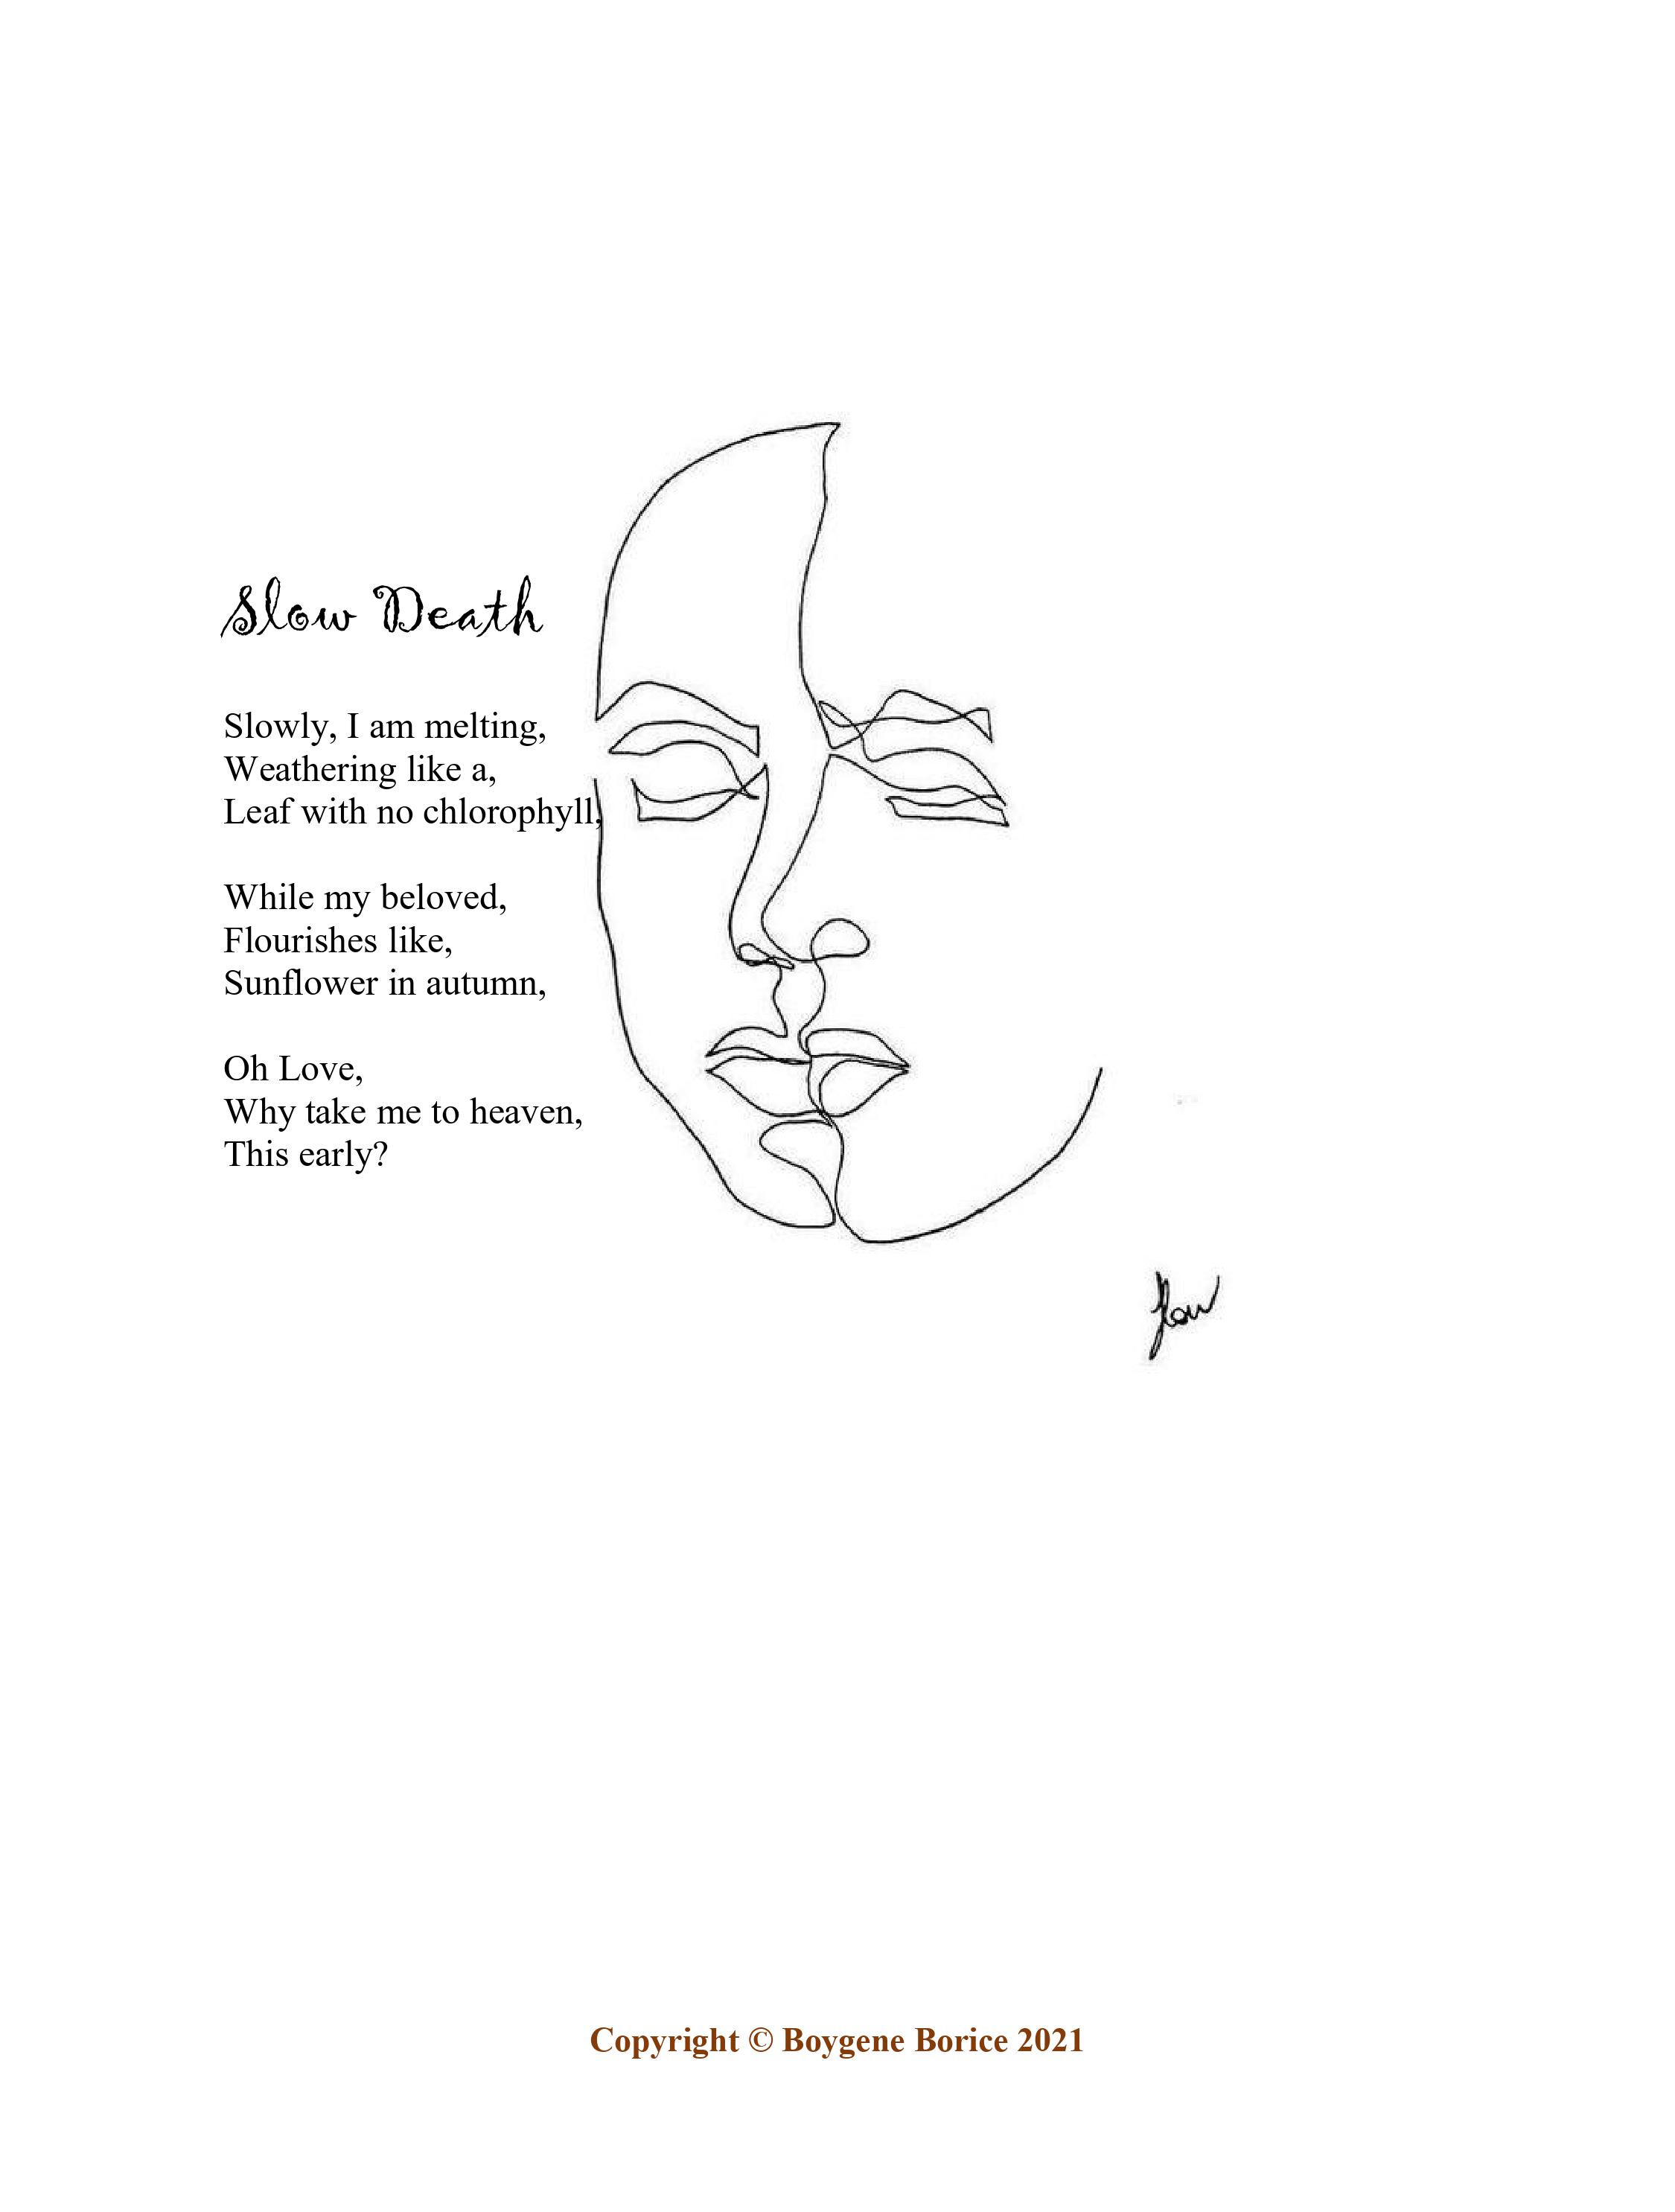 Slow Death
Slowly, I am melting,
Weathering like a,
Leaf with no chlorophyll,
While my beloved,
Flourishes like,
Sunflower in autumn,
Oh Love,
Why take me to heaven,
This early?
Copyright © Boygene Borice 2021